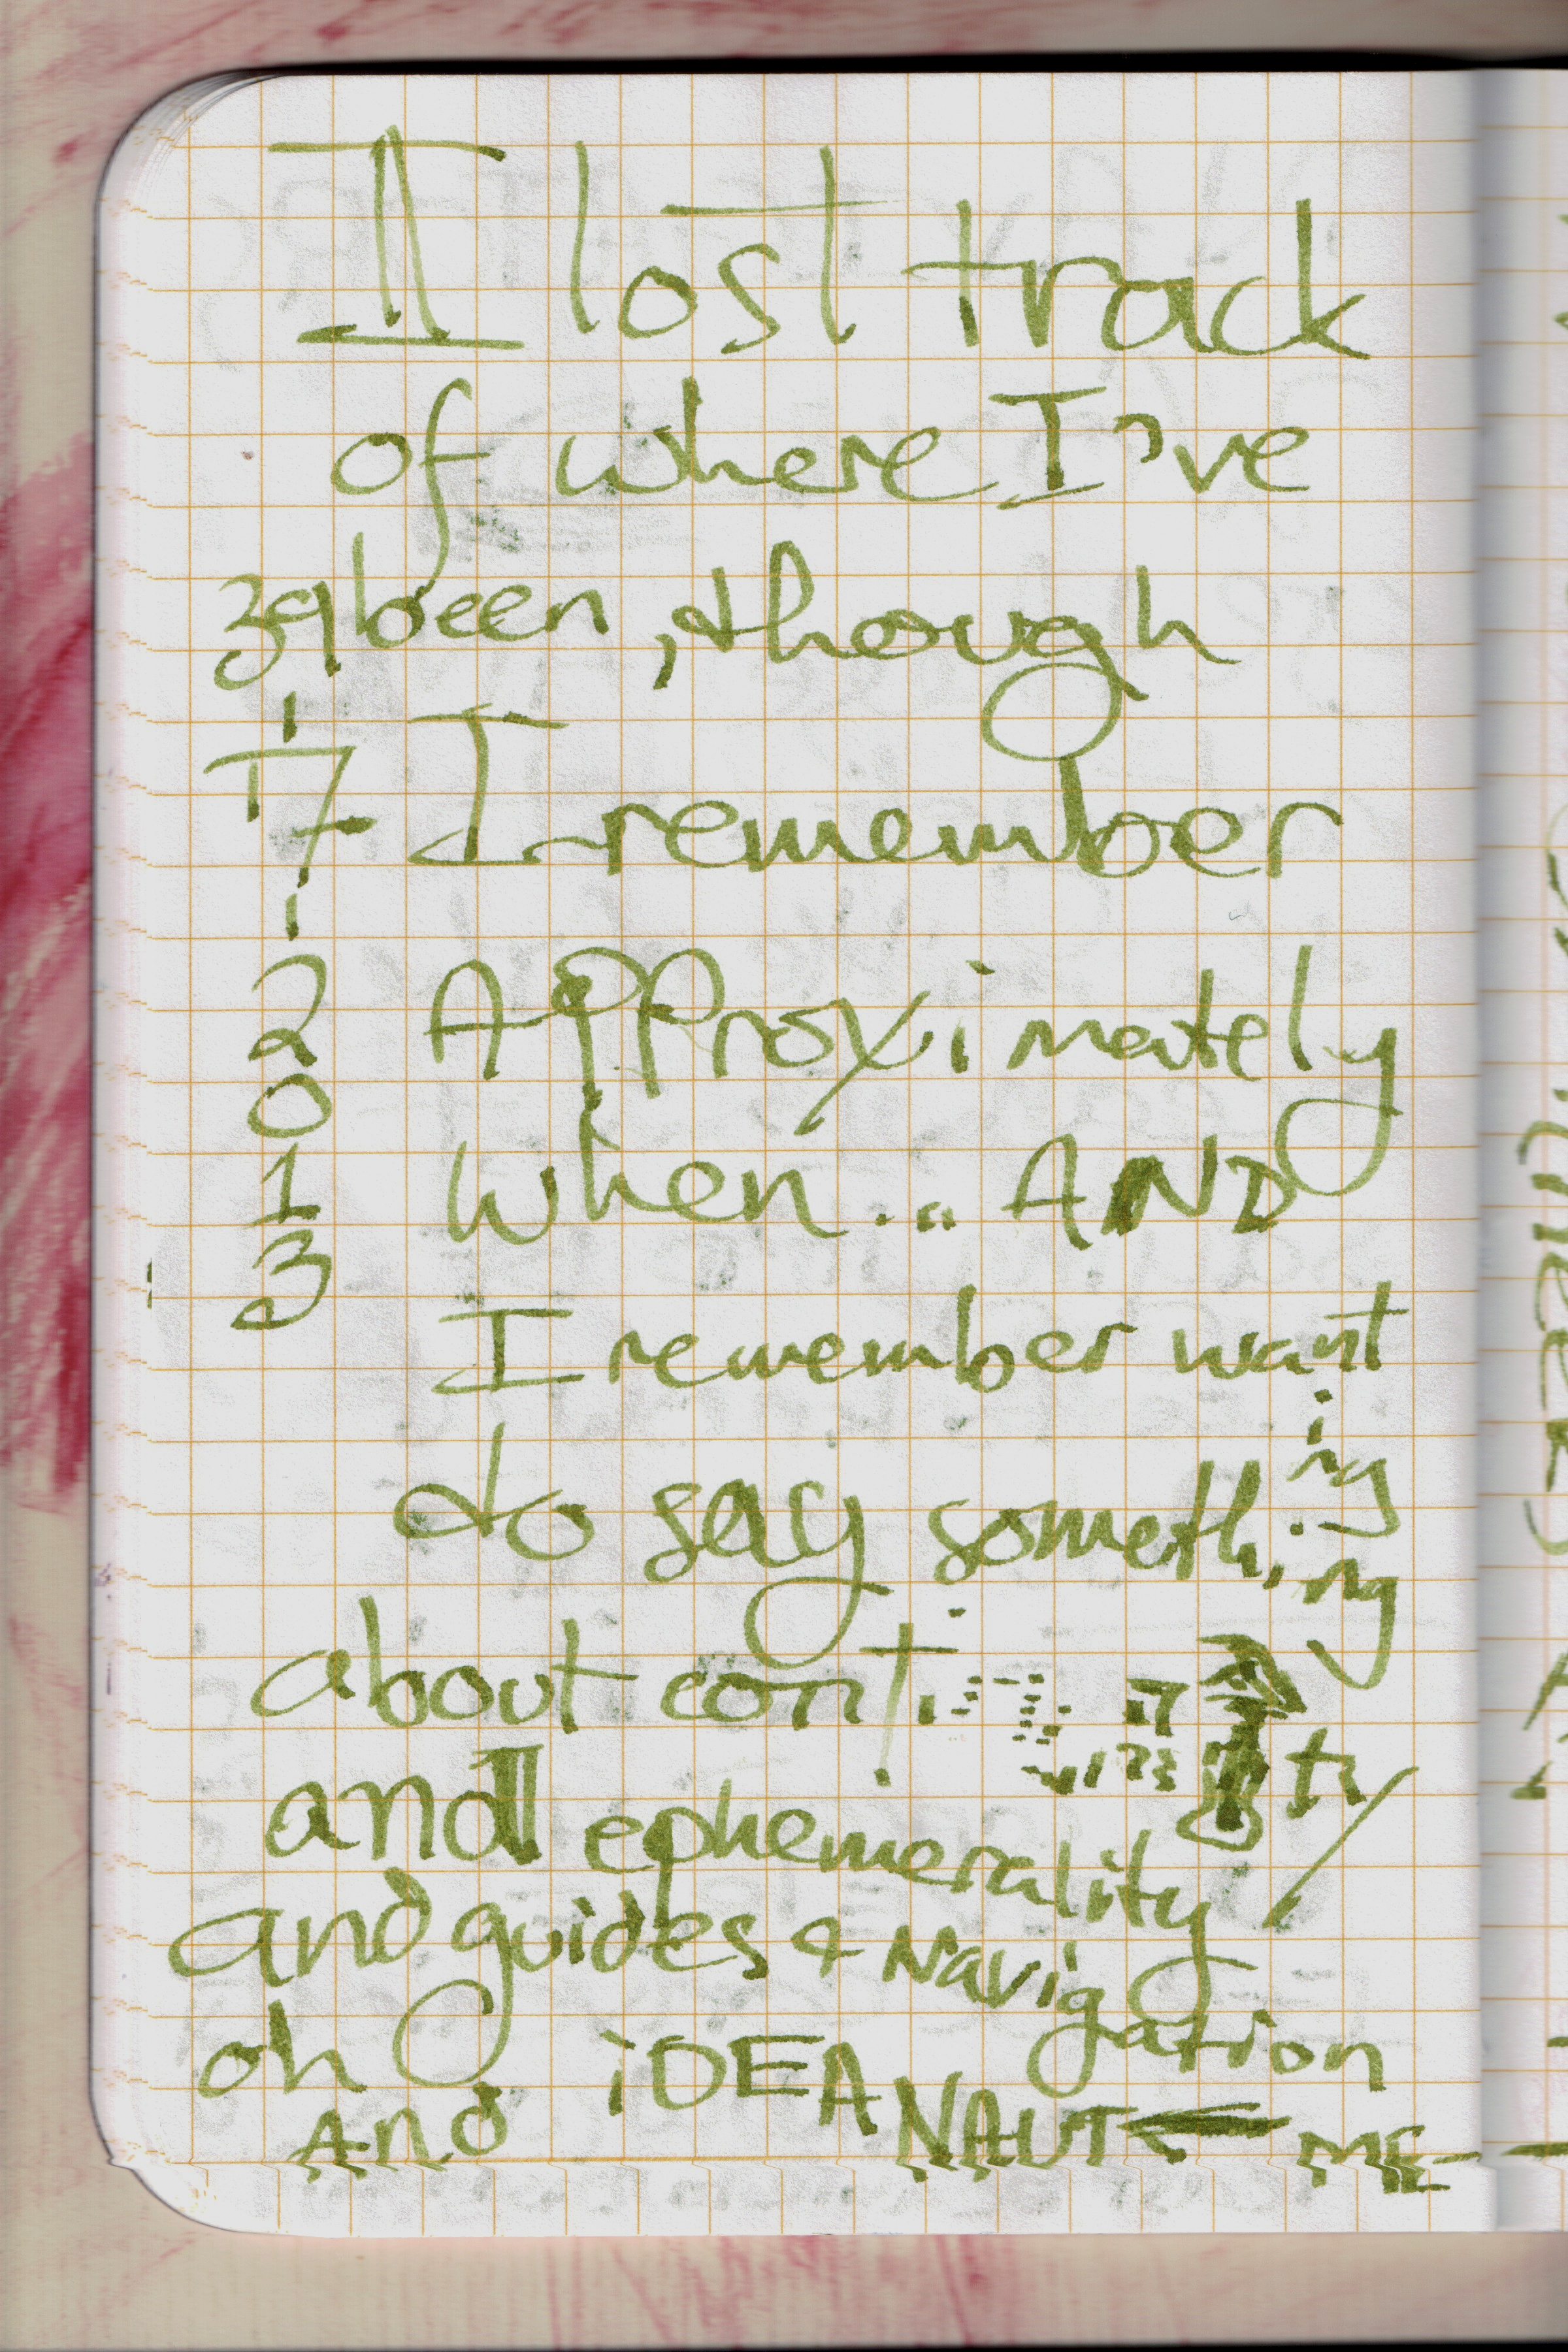 I lost track
of where I've
39 been, though
17 I remember
2 Approximately
0
1 when... AND
3
I remember want
ing
to say someth
ing
about conti ty
and ephemerality
and guides & Navig
ation
oh iDEANAUT ← ME
And